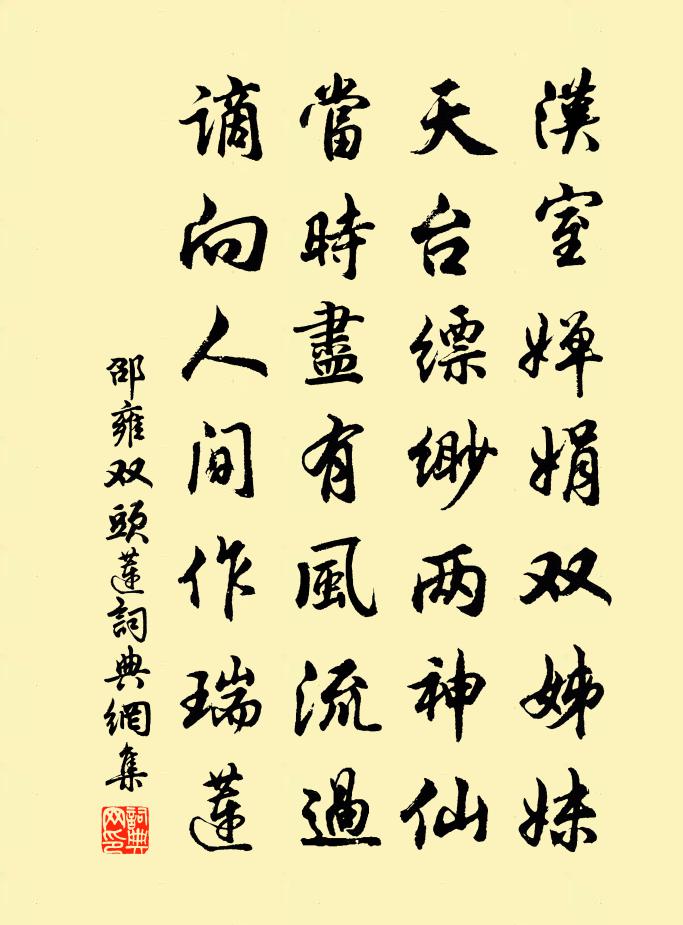 漢室嬋娟双姊妹
天台縹緲两神仙
當時盡有風流過
謫向人間作瑞蓮
邵雍双頭蓮詞典網集
詞典网印